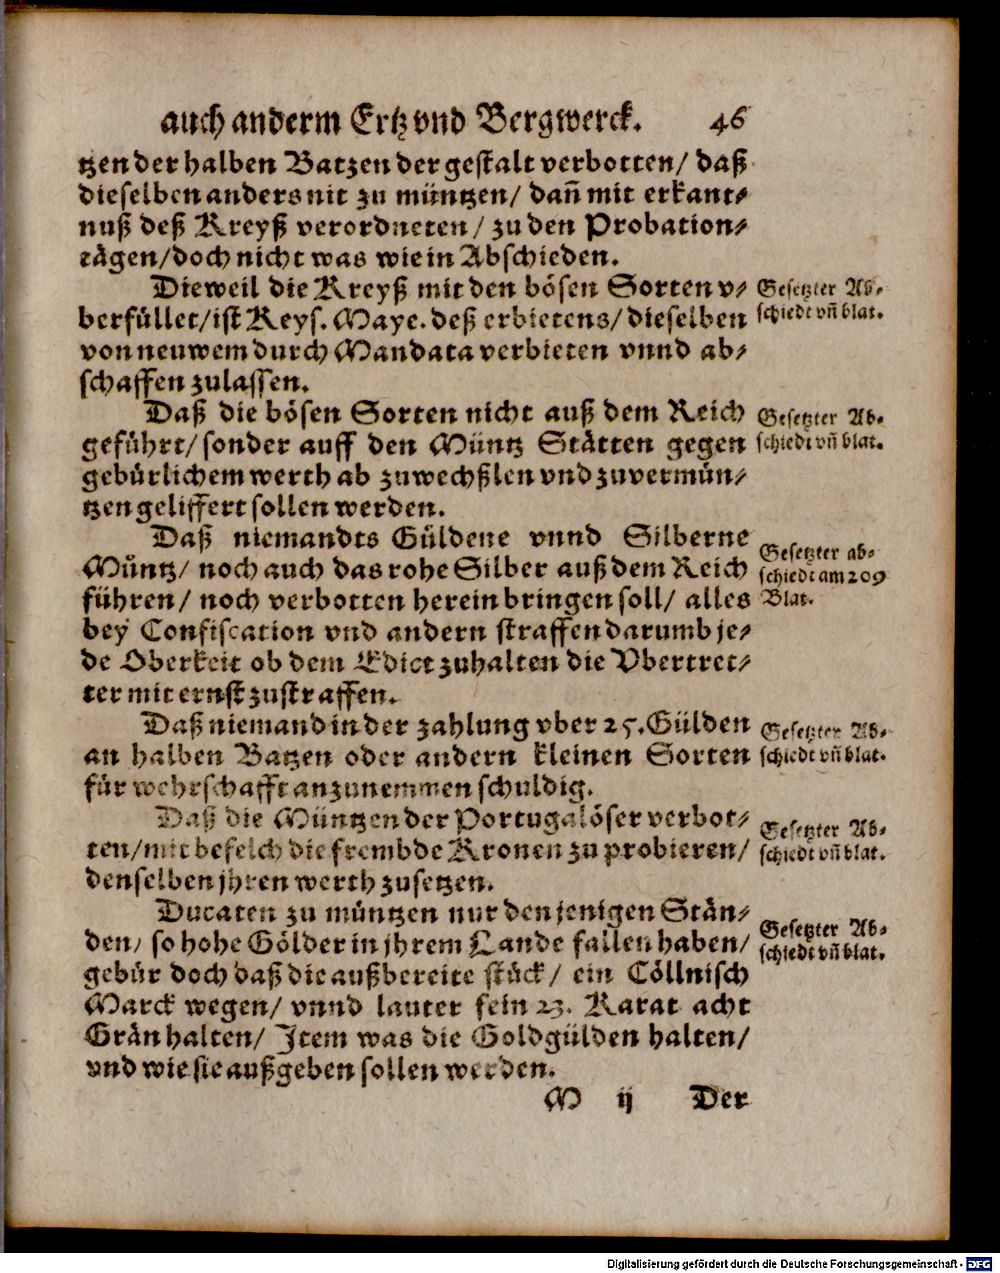 auch anderm Ertz vnd Bergwerck. 46
tzen der halben Batzen der gestalt verbotten/ daß
dieselben anders nit zu müntzen/ dañ mit erkant-
nuß deß Kreyß verordneten/ zu den Probation-
tägen/ doch nicht was wie in Abschieden.
Dieweil die Kreyß mit den bösen Sorten v-
berfüllet/ ist Keys. Maye. deß erbietens/ dieselben
von neuwem durch Mandata verbieten vnnd ab-
schaffen zulassen.
Gesetzter Ab-
schiedt vñ blat.
Daß die bösen Sorten nicht auß dem Reich
geführt/ sonder auff den Müntz Stätten gegen
gebürlichem werth ab zuwechßlen vnd zuvermün-
tzen geliffert sollen werden.
Gesetzter Ab-
schiedt vñ blat.
Daß niemandts Güldene vnnd Silberne
Müntz/ noch auch das rohe Silber auß dem Reich
führen/ noch verbotten herein bringen soll/ alles
bey Confiscation vnd andern straffen darumb je-
de Oberkeit ob dem Edict zuhalten die Vbertret-
ter mit ernst zustraffen.
Gesetzter ab-
schiedt am 209
Blat.
Daß niemand in der zahlung vber 25. Gülden
an halben Batzen oder andern kleinen Sorten
für wehrschafft anzunemmen schuldig.
Gesetzter Ab-
schiedt vñ blat.
Daß die Müntzen der Portugalöser verbot-
ten/ mit befelch die frembde Kronen zu probieren/
denselben jhren werth zusetzen.
Gesetzter Ab-
schiedt vñ blat.
Ducaten zu müntzen nur den jenigen Stän-
den/ so hohe Gölder in jhrem Lande fallen haben/
gebür doch daß die außbereite stück/ ein Cöllnisch
Marck wegen/ vnnd lauter fein 23. Karat acht
Grän halten/ Item was die Goldgülden halten/
vnd wie sie außgeben sollen werden.
Gesetzter Ab-
schiedt vñ blat.
M ij Der
Digitalisierung gefördert durch die Deutsche Forschungsgemeinschaft - DFG